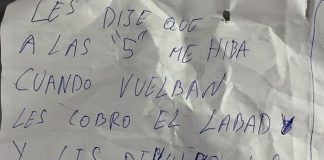 LES DIJE QUE
A LAS "5" ME HIBA
CUANDO VUELBAN
LES COBRO EL LABADY
Y LES